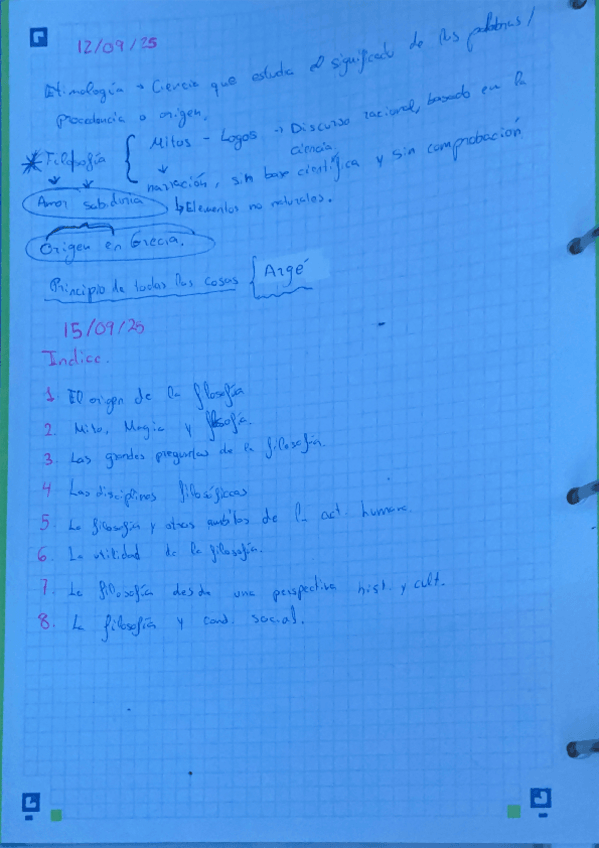 12/09/25
Etimología → Ciencia que estudia el significado de las palabras/
procedencia o origen.
Mitos - Logos → Discurso racional, basado en la
ciencia.
* Filosofía {
narración, sin base científica y sin comprobación
Amor sabiduria
↳ Elementos no naturales.
Origen en Grecia.
Principio de todas las cosas { Argé
15/09/25
Indice.
1 El origen de la filosofía
2 Mito, Magia y filosofía.
3. Las grandes preguntas de la filosofía.
4 Las disciplinas filosóficas
5. La filosofía y otros ambitos de la act. humana.
6. La utilidad de la filosofía.
7. La filosofía desde una perspectiva hist. y cult.
8. La filosofía y cond. social.